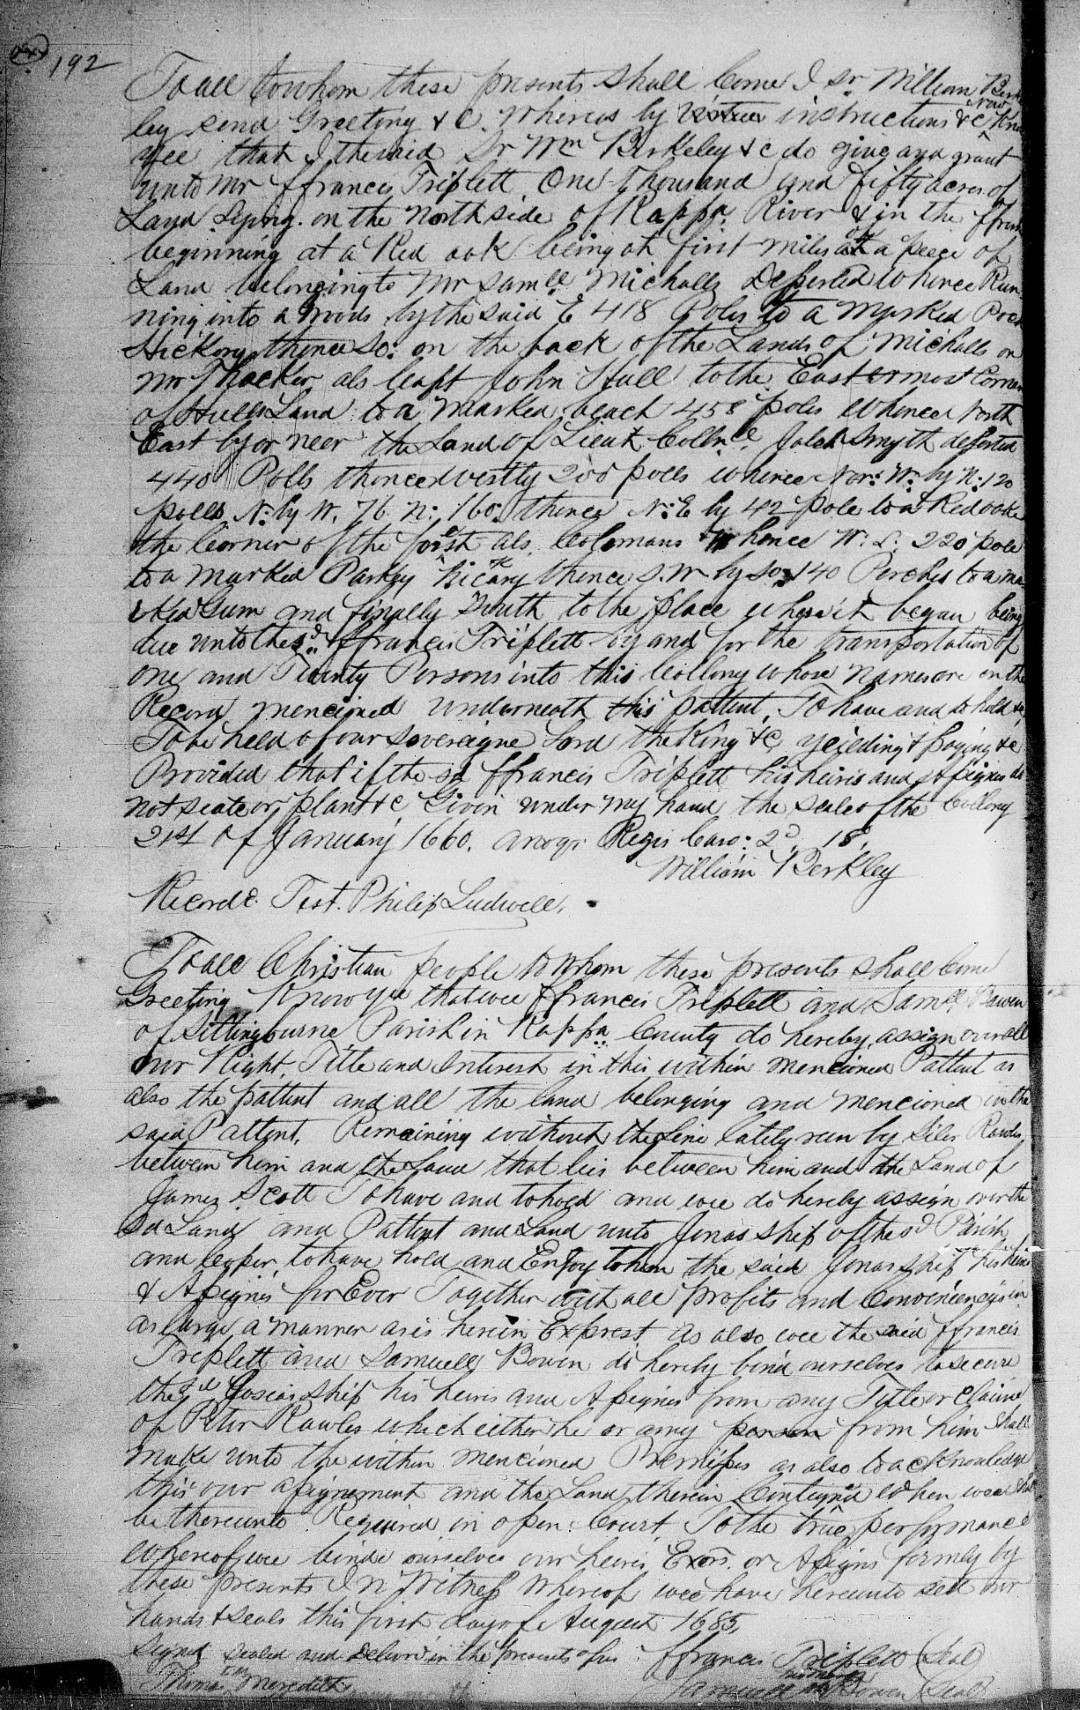 192
To all to whom these presents shall Come I Sr William Berke
ley send Greeting & C. Whereas by Vertue instructions &c Now Know
yee that I the said Sr Wm Berkeley &c do give and grant
unto Mr ffrancis Triplett One Thousand and fifty acres of
Land Lying on the North side of Rappa River & in the ffrees
beginning at a Red oak being at first miles a peece of
Land belonging to Mr Samll Micholls Desserted whence Run
ning into a Woods by the said E 418 Poles to a Marked Pock
Hickory thence So: on the back of the Lands of Micholls on
Mr Thacker als leaft John Hull to the Eastermost Corner
of Hulls Land to a Marked beach 458 poles Whence North
East by or neer the Land of Lieut Collnel Smyth desserted
440 Polls thence westly 200 polls whence Nor: W: by N: 120
polls N: by W. 76 N: 160 thence N: E by 42 pole to a Red oake
the Corner of the forest als Colemans Whence W. S. 220 pole
to a marked Parkey hicary thence S. W by So: 140 Perches to a ma
rked Gum and finally South to the place where it began being
due unto the sd: ffrancis Triplett by and for the transportation of
one and Twenty Persons into this Collony whose Names are on the
Record mencioned underneath this pattent, To have and to hold &c
To be held of our Sovereigne Lord the King &c yeilding & paying &c
Provided that if the sd ffrancis Triplett his heirs and Assignes do
not seate or plant &c Given under my hand the seale of the Collony
21st of January 1660. Regis Caro: 2d, 18.
William Berkley
Recorde Test. Philip Ludwell.
To all Christian people to Whom these presents shall Come
Greeting Know yee that wee ffrancis Triplett and Samll Bowen
of Sittingbourne Parish in Rappa County do hereby assign over all
our Right, Title and Interest in this within mencioned Pattent as
also the pattent and all the land belonging and mencioned in the
said Pattent, Remaining without the Line lately run by
between him and the Land that lies between him and the Land of
James Scott To have and to hold and wee do hereby assign over the
sd Land and Pattent and Land unto Jonas Ship of the sd Parish
and to have hold and Enjoy to him the said Jonas Ship his heirs
& Assignes for Ever Together with all profits and Conveniencys in
as large a manner as is herein Exprest As also wee the said ffrancis
Triplett and Samuell Bowen do hereby bind ourselves to secure
the sd Josias Ship his heirs and Assignes from any Title or Claime
of Peter Rawles which either he or any person from him shall
make unto the within mencioned Premisses as also to acknowledge
this our assignement and the Land therein Conteyned When wee shall
be thereunto Required in open Court To the true performance
whereof wee binde ourselves our heirs Exors. or Assigns firmly by
these presents In Witness Whereof wee have hereunto sett our
hands & seals this first day of August 1685.
Signed sealed and delivrd in the presents of us ffrancis Triplett (Seal)
Thomas Meredith Samuell Bowen (Seal)